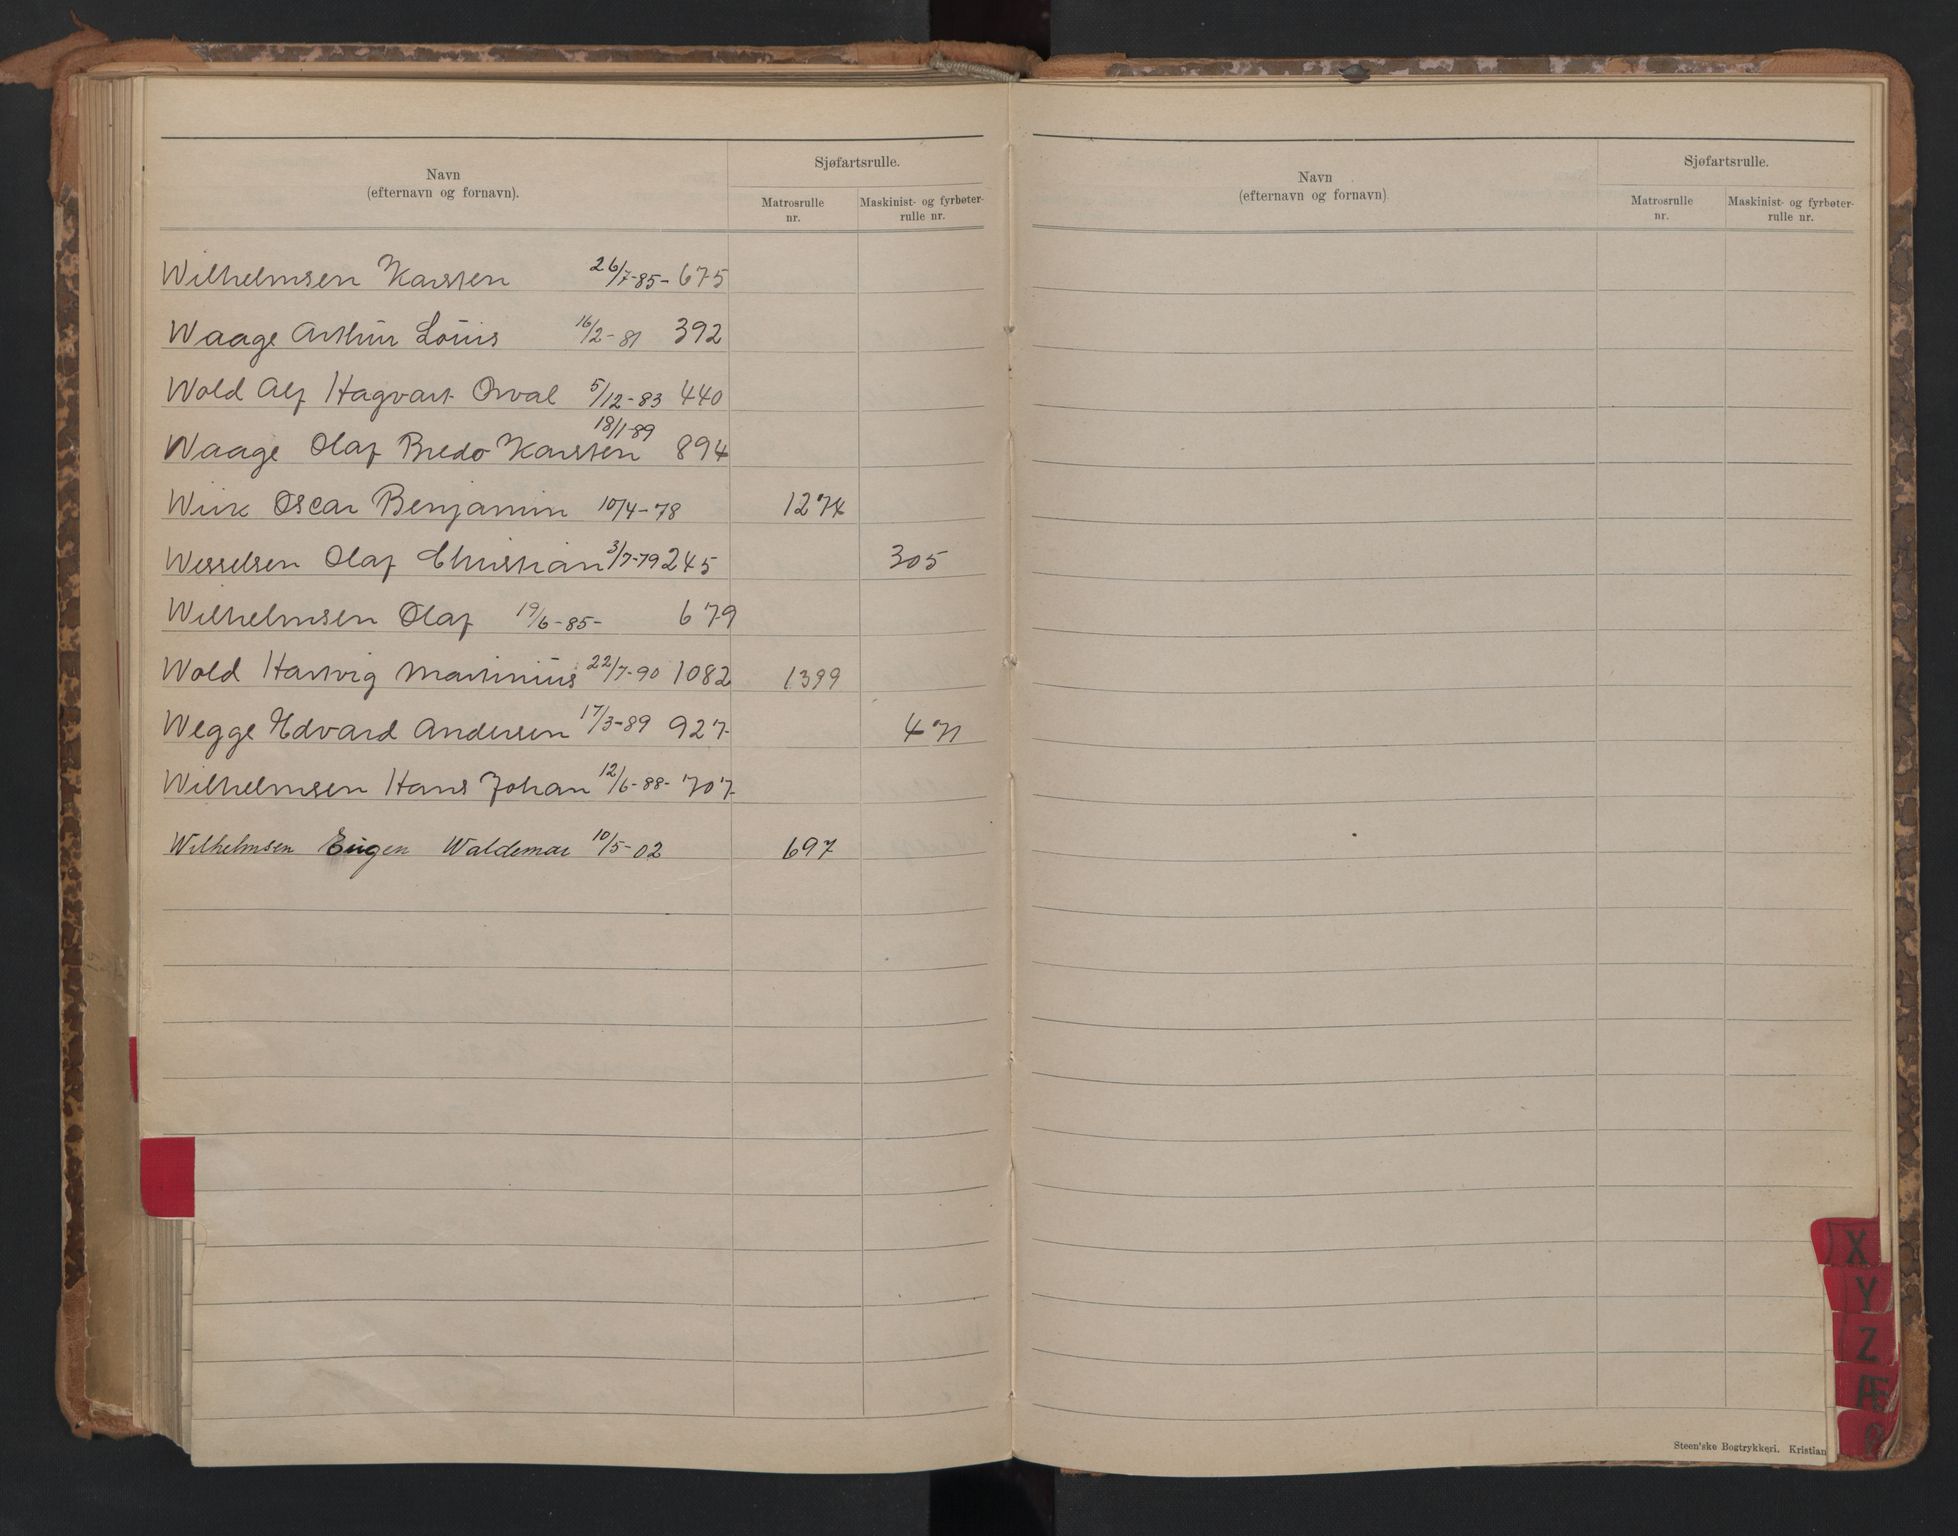 Navn
(efternavn og fornavn).
Sjøfartsrulle.
Matrosrulle
nr.
Maskinist- og fyrbøter-
rulle nr.
Wilhelmsen Karsten 26/7-85- 675
Waage Arthur Louis 16/2-81 392
Wold Alf Hagvart Orval 5/12-83 440
18/1-89
Waage Olaf Bredo Karsten 894
Wiik Oscar Benjamin 10/4-78 1274
Wesselsen Olaf Christian 3/7-79 245 305
Wilhelmsen Olaf 19/6-85- 679
Wold Hartvig Martinius 22/7-90 1082 1399
Wegge Edvard Andersen 17/3-89 927 471
Wilhelmsen Hans Johan 12/6-88- 707
Wilhelmsen Eugen Waldemar 10/5-02 697
Navn
(efternavn og fornavn)
Sjøfartsrulle.
Matrosrulle
nr.
Maskinist- og fyrbøter-
rulle nr.
X
Y
Z
Æ
Steen'ske Bogtrykkeri. Kristian